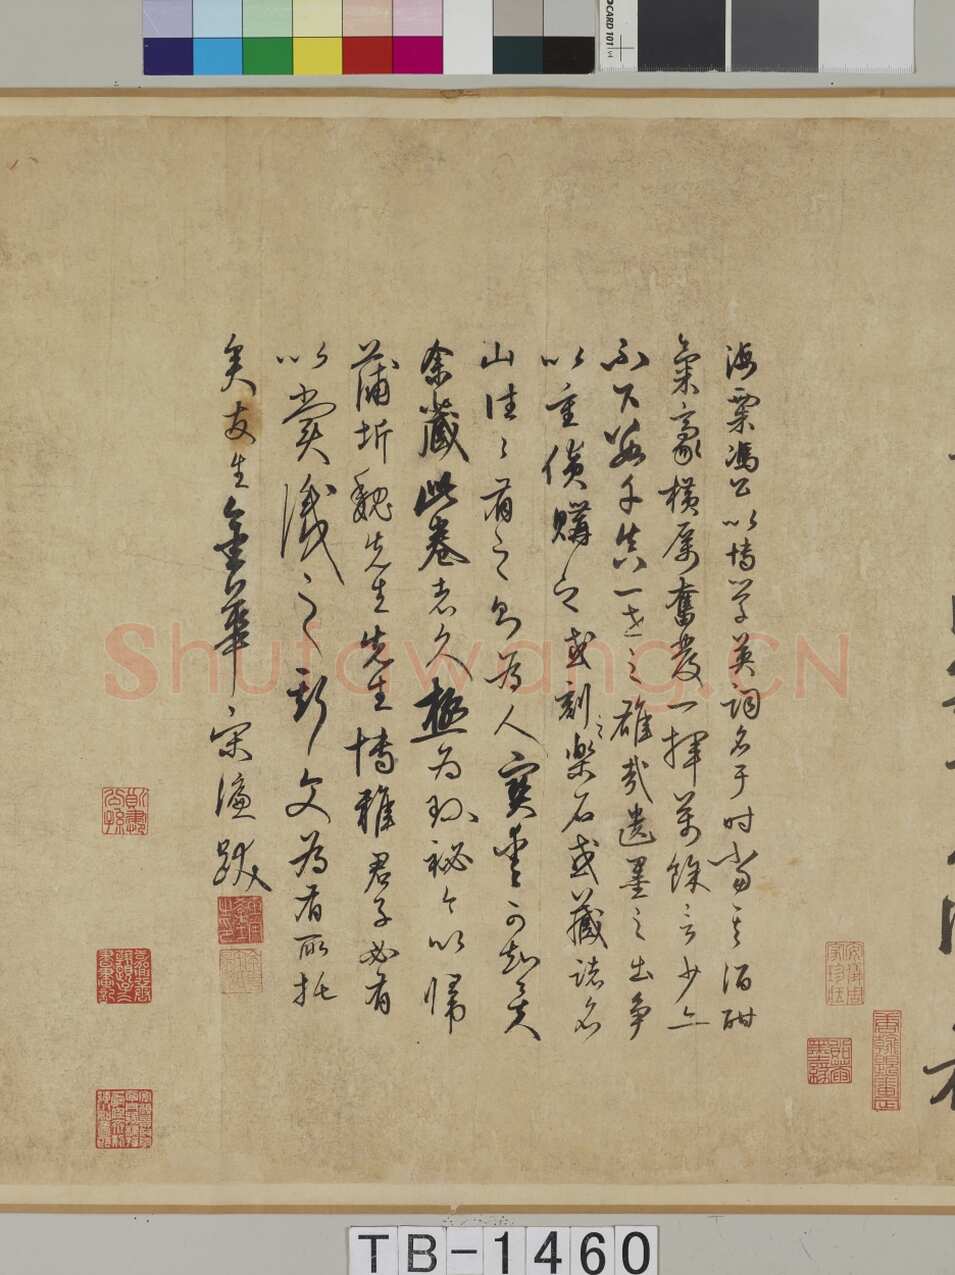 海粟馮公以博学英詞名于时當其酒酣
氣豪橫厲奮發一揮萬餘言少亦
不下數千真一世之雄哉遺墨之出争
以重價購之或刻之樂石或藏諸名
山徃々有之則為人寶愛可知矣
余藏此卷者久極為珍祕今以歸
蒲圻魏先生先生博雅君子必有
以賞識之斯文為有所托
矣友生金華宋濂跋
CARD 101 v4
Shufawang.CN
TB-1460